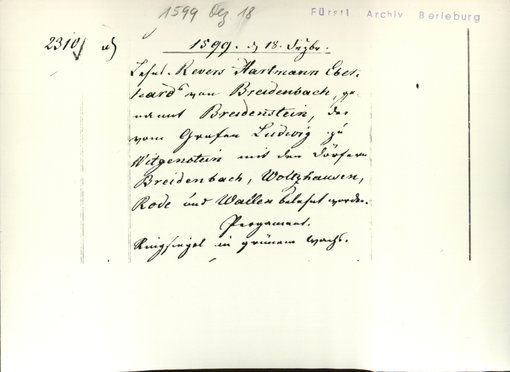 1599 Dez 18
Fürstl. Archiv Berleburg
2310 a)
1599. d 18. Dezbr.
Lehn-Revers Hartmann Eber-
hards von Breidenbach, ge-
nannt Breidenstein, der
vom Grafen Ludwig zu
Witgenstein mit den Dörfern
Breidenbach, Woltzhausen,
Rode und Wallen belehnt worden.
Pergament.
Ringsiegel in grünem Wachs.